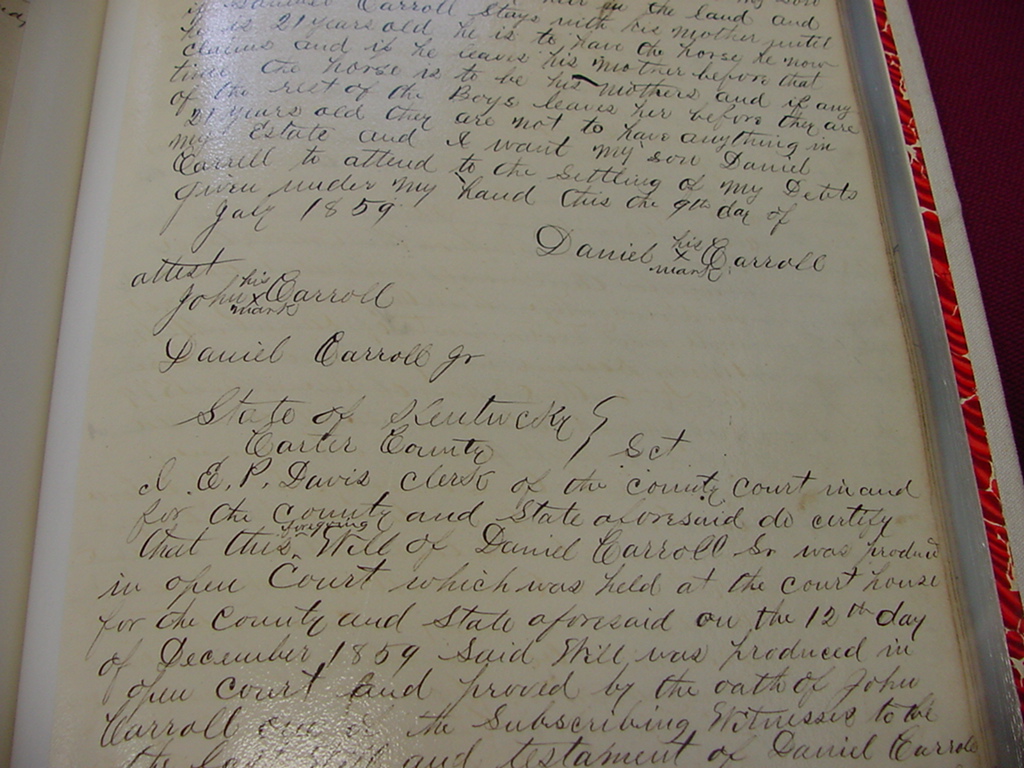 in the land and
if Samuel Carroll Stays with his mother until
he is 21 years old he is to have the horse he now
claims and if he leaves his mother before that
time the horse is to be his mothers and if any
of the rest of the Boys leaves her before they are
21 years old they are not to have anything in
my Estate and I want my son Daniel
Carrell to attend to the Settling of my Debts
given under my hand this the 9th day of
July 1859
Daniel his x mark Carroll
attest
John his x mark Carroll
Daniel Carroll Jr
State of Kentucky
Carter County Sct
I E. P. Davis clerk of the county court in and
for the county and State aforesaid do certify
that this foregoing Will of Daniel Carroll Sr was produced
in open Court which was held at the court house
for the County and State aforesaid on the 12th day
of December 1859 Said Will was produced in
open Court and proved by the oath of John
Carroll one of the Subscribing Witnesses to be
the last Will and testament of Daniel Carroll